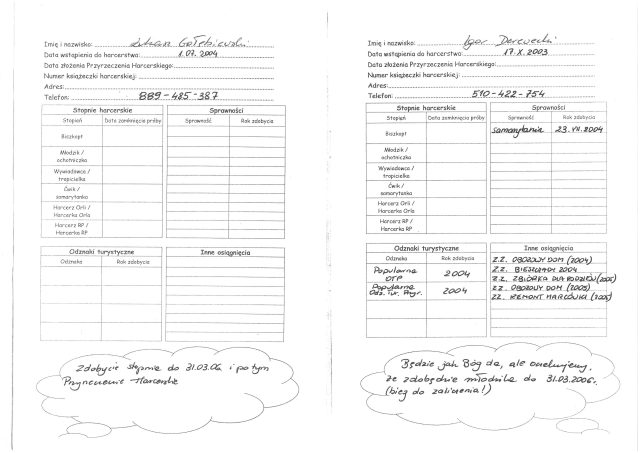 Imię i nazwisko: Łukasz Gołębiewski
Data wstąpienia do harcerstwa: 1.07.2004
Data złożenia Przyrzeczenia Harcerskiego:
Numer książeczki harcerskiej:
Adres:
Telefon: 889-485-387
Stopnie harcerskie Sprawności
Stopień Data zamknięcia próby Sprawność Rok zdobycia
Biszkopt
Młodzik /
ochotniczka
Wywiadowca /
tropicielka
Ćwik /
samarytanka
Harcerz Orli /
Harcerka Orla
Harcerz RP /
Harcerka RP
Odznaki turystyczne Inne osiągnięcia
Odznaka Rok zdobycia
Zdobycie stopnia do 31.03.06 i po tym
Przyrzeczenie Harcerskie
Imię i nazwisko: Igor Derewecki
Data wstąpienia do harcerstwa: 17.X.2003
Data złożenia Przyrzeczenia Harcerskiego:
Numer książeczki harcerskiej:
Adres:
Telefon: 510-422-754
Stopnie harcerskie Sprawności
Stopień Data zamknięcia próby Sprawność Rok zdobycia
Biszkopt samarytanin 23.VII.2004
Młodzik /
ochotniczka
Wywiadowca /
tropicielka
Ćwik /
samarytanka
Harcerz Orli /
Harcerka Orla
Harcerz RP /
Harcerka RP
Odznaki turystyczne Inne osiągnięcia
Odznaka Rok zdobycia Z.Z. OBOZOWY DOM (2004)
Popularna OTP 2004 Z.Z. BIESZCZADY 2004
Z.Z. ZBIÓRKA DLA RODZICÓW (2005)
Popularna Odz. Tur. Przyr. 2004 Z.Z. OBOZOWY DOM (2005)
Z.Z. REMONT HARCÓWKI (2005)
Będzie jak Bóg da, ale oczekujemy,
że zdobędzie młodzika do 31.03.2006.
(bieg do zaliczenia!)